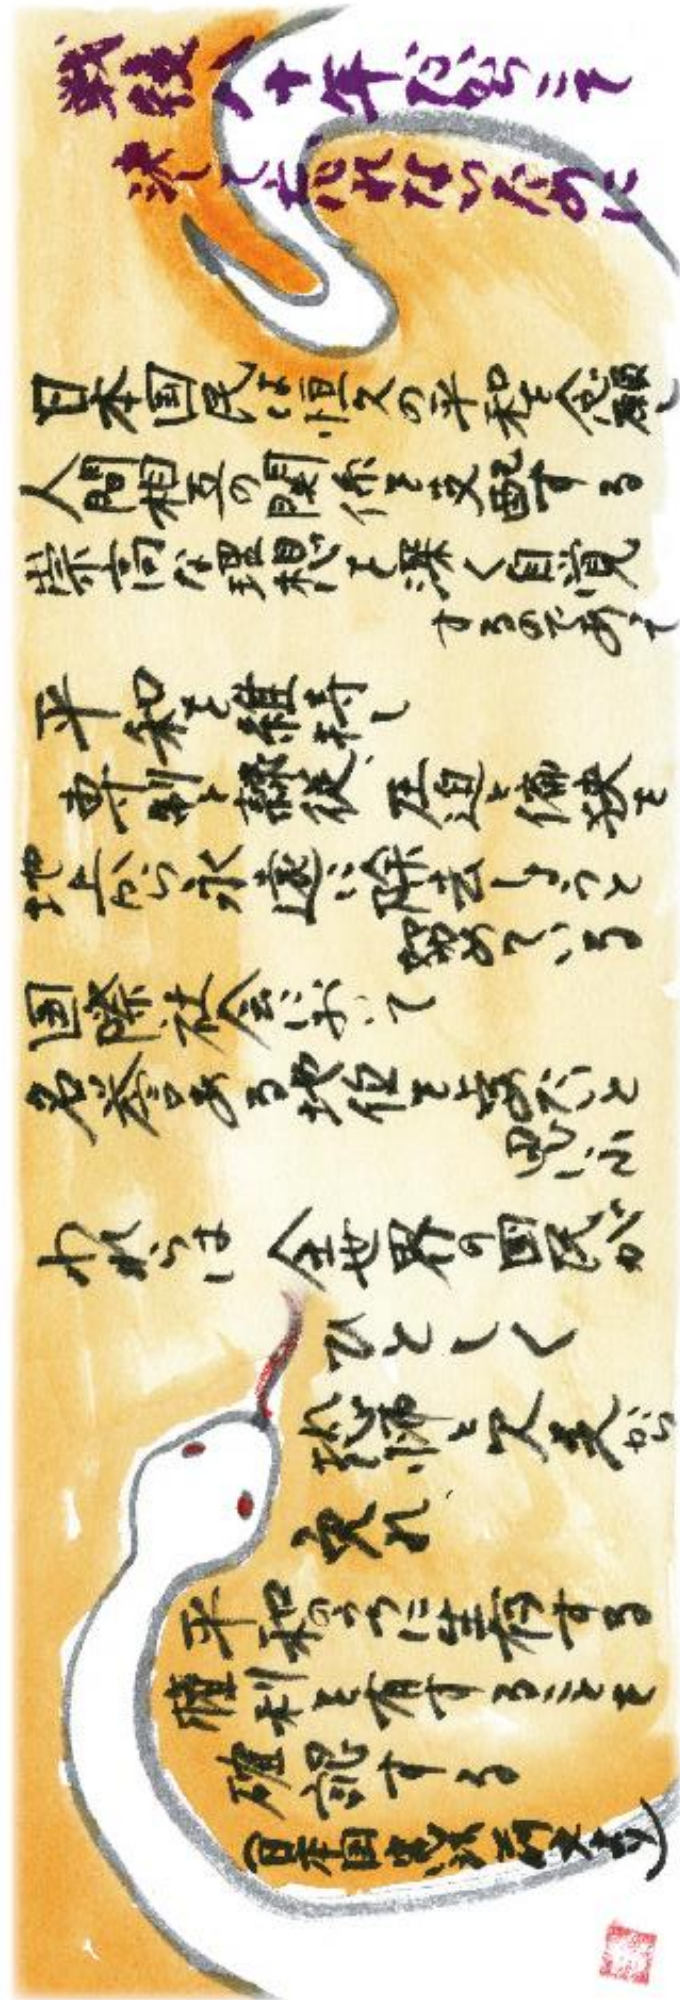 戦後八十年だからこそ
決して忘れないために
日本国民は恒久の平和を念願し
人間相互の関係を支配する
崇高な理想を深く自覚
するのであって
平和を維持し
専制と隷従、圧迫と偏狭を
地上から永遠に除去しようと
努めている
国際社会において
名誉ある地位を占めたいと
思ふ
われらは 全世界の国民が
ひとしく
恐怖と欠乏から
免れ
平和のうちに生存する
権利を有することを
確認する
(日本国憲法前文より)